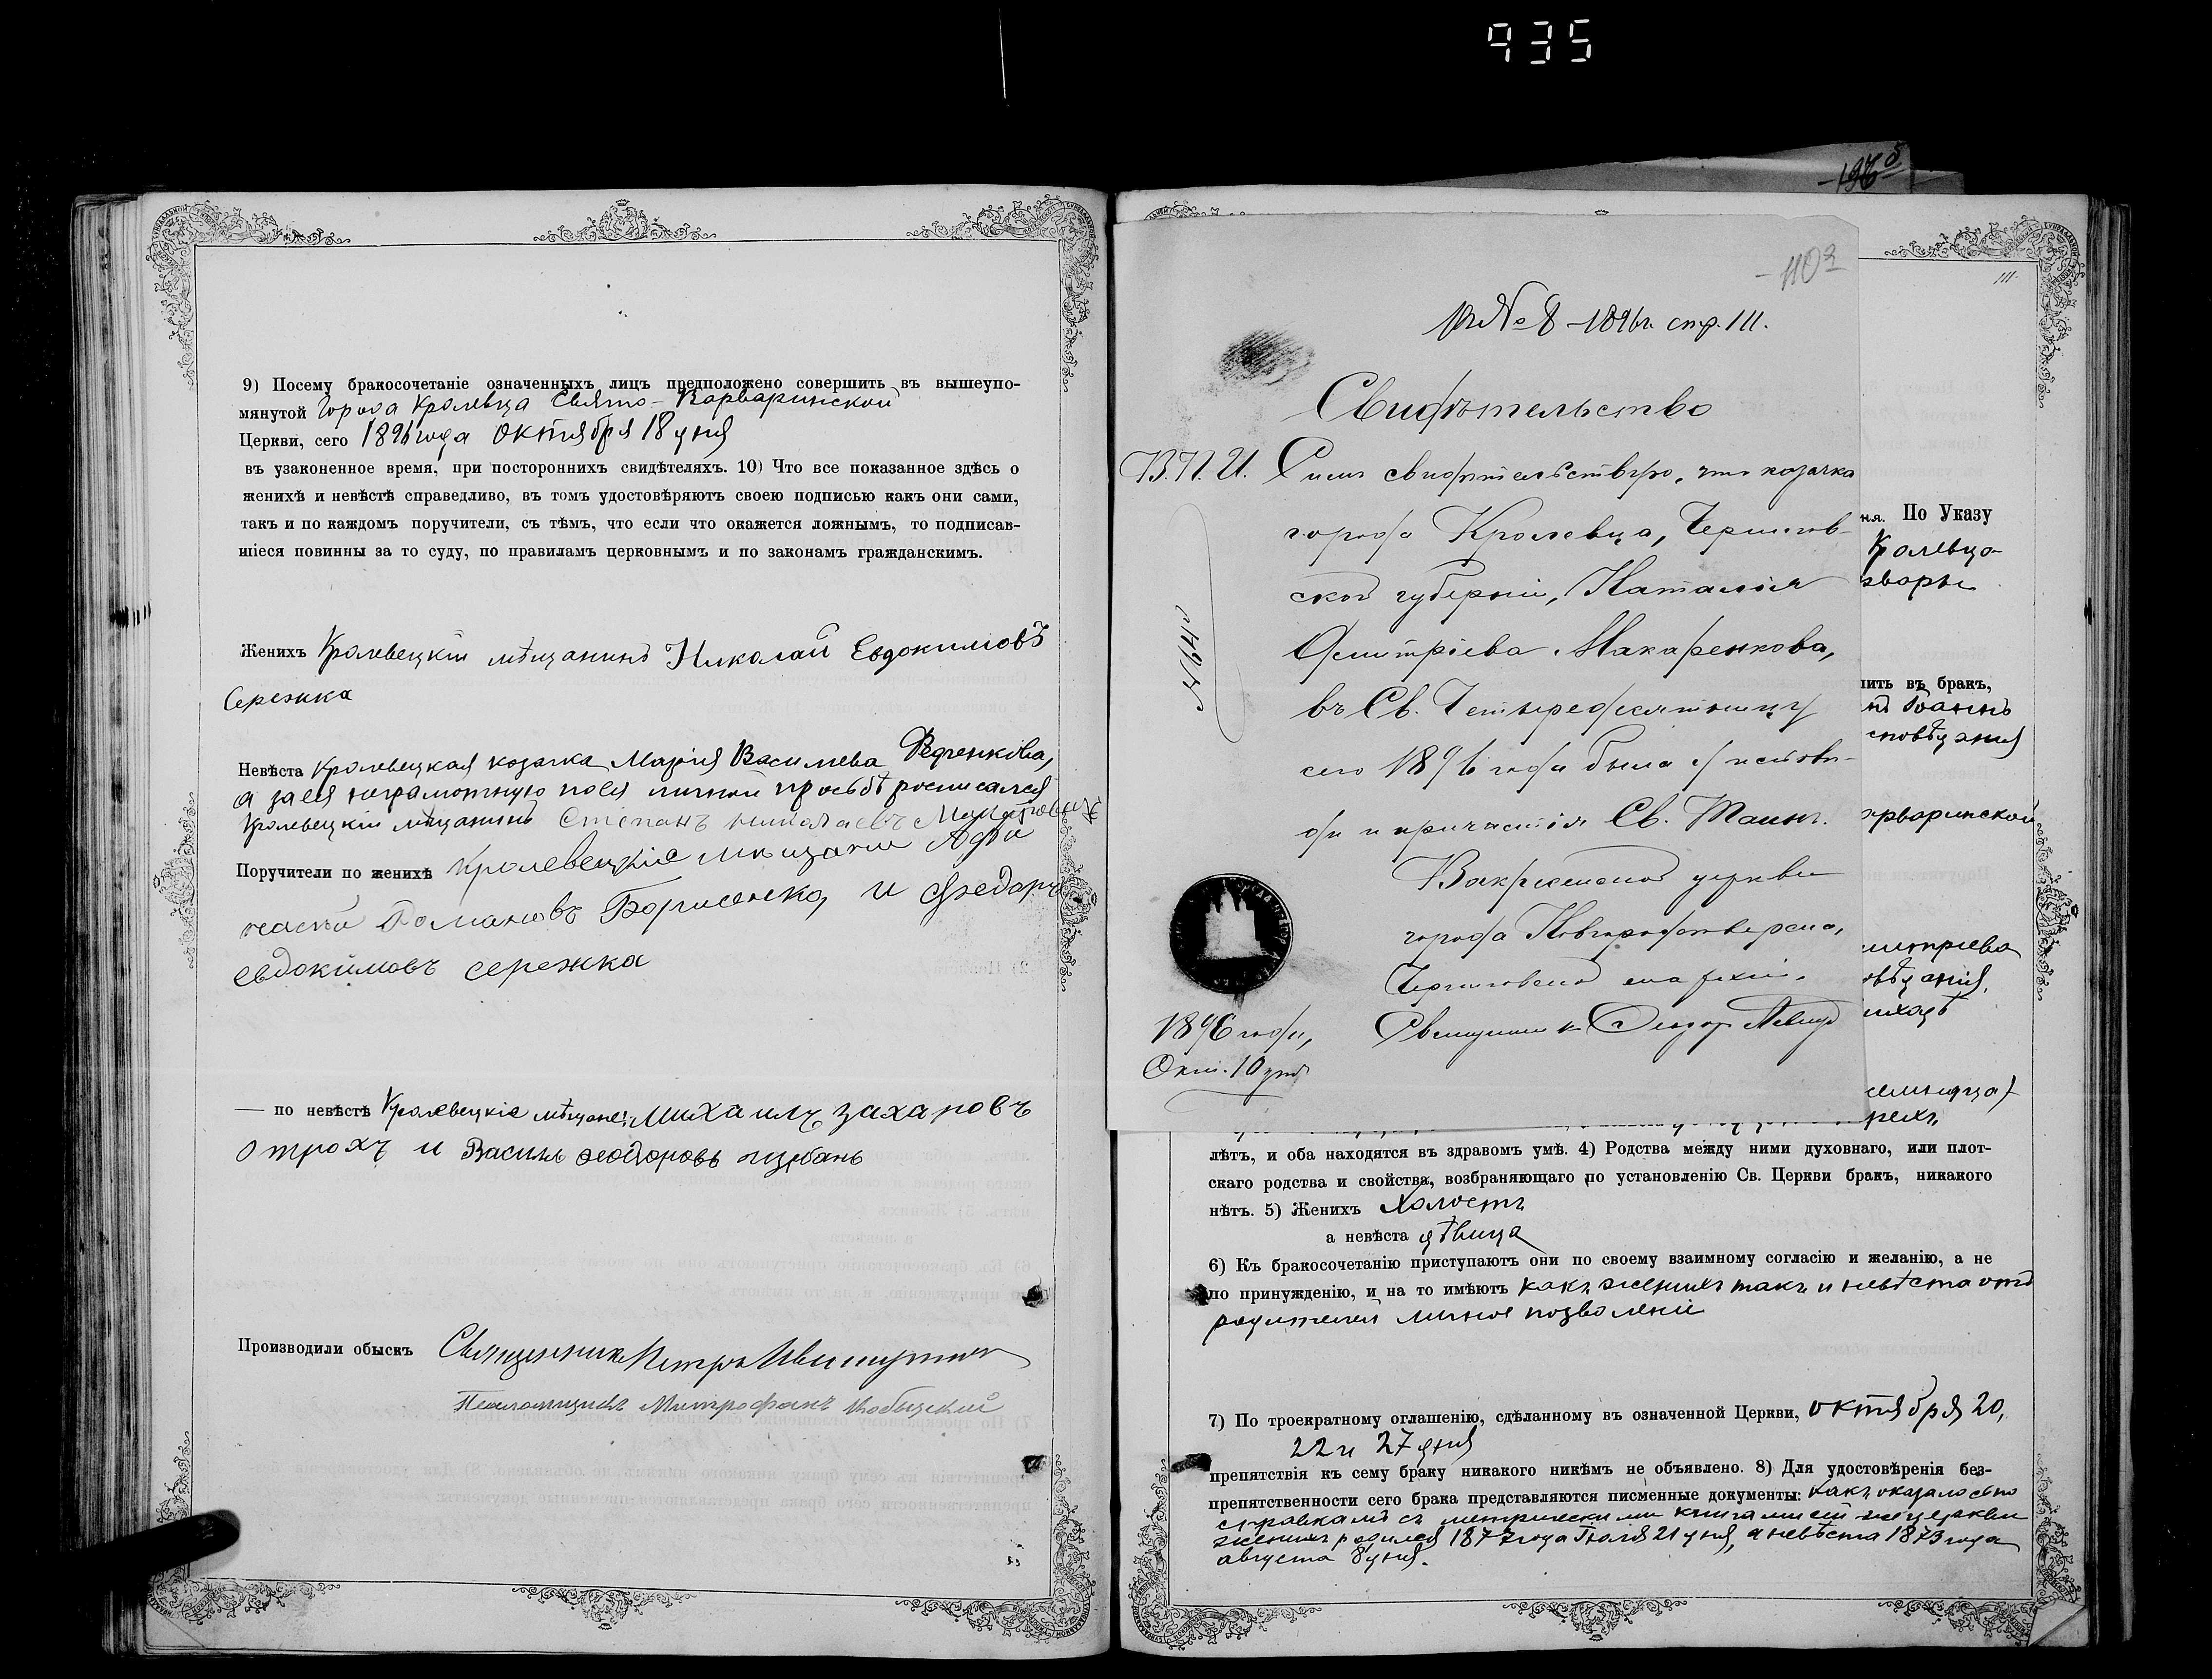 935
9) Посему бракосочетаніе означенныхъ лицъ предположено совершить въ вышеупо-
мянутой города Кролевца Свято-Варваринской
Церкви, сего 1896 года октября 18 дня
въ узаконенное время, при постороннихъ свидѣтеляхъ. 10) Что все показанное здѣсь о
женихѣ и невѣстѣ справедливо, въ томъ удостовѣряютъ своею подписью какъ они сами,
такъ и по каждомъ поручители, съ тѣмъ, что если что окажется ложнымъ, то подписав-
шіеся повинны за то суду, по правиламъ церковнымъ и по законамъ гражданскимъ.
Женихъ Кролевецкій мѣщанинъ Николай Евдокимовъ
Сережка
Невѣста Кролевецкая козачка Марія Васильева Федченкова,
а за ея неграмотную по ея личной просьбѣ росписался
Кролевецкій мѣщанинъ Степанъ Николаевъ
Поручители по женихѣ Кролевецкіе мѣщане Афа
насій Романовъ Борисенко, и Федоръ
Евдокимовъ Сережка
— по невѣстѣ Кролевецкіе мѣщане: Михаилъ Захаровъ
Отрохъ и Василь Феодоровъ
Производили обыскъ Священникъ Петръ
Псаломщикъ Митрофанъ
-196
-110
Къ № 8 -1896 г. стр. 111.
Свидѣтельство
В.П.И. Симъ свидѣтельствую, что козачка
города Кролевца, Чернигов-
ской губерніи, Наталія
Димитріева Макаренкова,
въ Св. Четыредесятницу
сего 1896 года была у исповѣ-
ди и причастія Св. Таинъ.
Воскресенской церкви
города Новгородсѣверска,
Черниговской епархіи.
Священникъ
1896 года,
Окт. 10 дня
№ 194
111
ня. По Указу
Кролевца
рвары
пить въ бракъ,
Іоаннъ
сповѣданія
арваринской
имитріева
овѣданія,
трехъ
лѣтъ, и оба находятся въ здравомъ умѣ. 4) Родства между ними духовнаго, или плот-
скаго родства и свойства, возбраняющаго по установленію Св. Церкви бракъ, никакого
нѣтъ. 5) Женихъ холостъ
а невѣста дѣвица
6) Къ бракосочетанію приступаютъ они по своему взаимному согласію и желанію, а не
по принужденію, и на то имѣютъ какъ женихъ такъ и невѣста отъ
родителей личное позволеніе
7) По троекратному оглашенію, сдѣланному въ означенной Церкви, октября 20,
22 и 27 дня
препятствія къ сему браку никакого никѣмъ не объявлено. 8) Для удостовѣренія без-
препятственности сего брака представляются писменные документы: какъ оказалось по
справкамъ съ метрическими книгами сей же церкви
женихъ родился 1877 года Іюля 21 дня, а невѣста 1873 года
августа 8 дня.